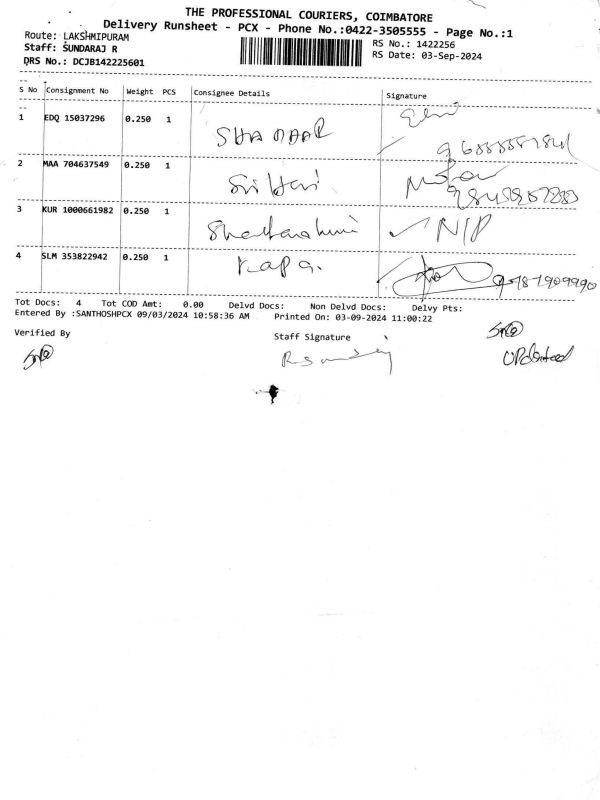 THE PROFESSIONAL COURIERS, COIMBATORE
Delivery Runsheet - PCX - Phone No.:0422-3505555 - Page No.:1
Route: LAKSHMIPURAM
RS No.: 1422256
Staff: SUNDARAJ R
RS Date: 03-Sep-2024
DRS No.: DCJB142225601
S No Consignment No Weight PCS Consignee Details Signature
1 EDQ 15037296 0.250 1
2 MAA 704637549 0.250 1 Sri Hari
3 KUR 1000661982 0.250 1 N/P
4 SLM 353822942 0.250 1
Tot Docs: 4 Tot COD Amt: 0.00 Delvd Docs: Non Delvd Docs: Delvy Pts:
Entered By :SANTHOSHPCX 09/03/2024 10:58:36 AM Printed On: 03-09-2024 11:00:22
Verified By
Staff Signature
Updated